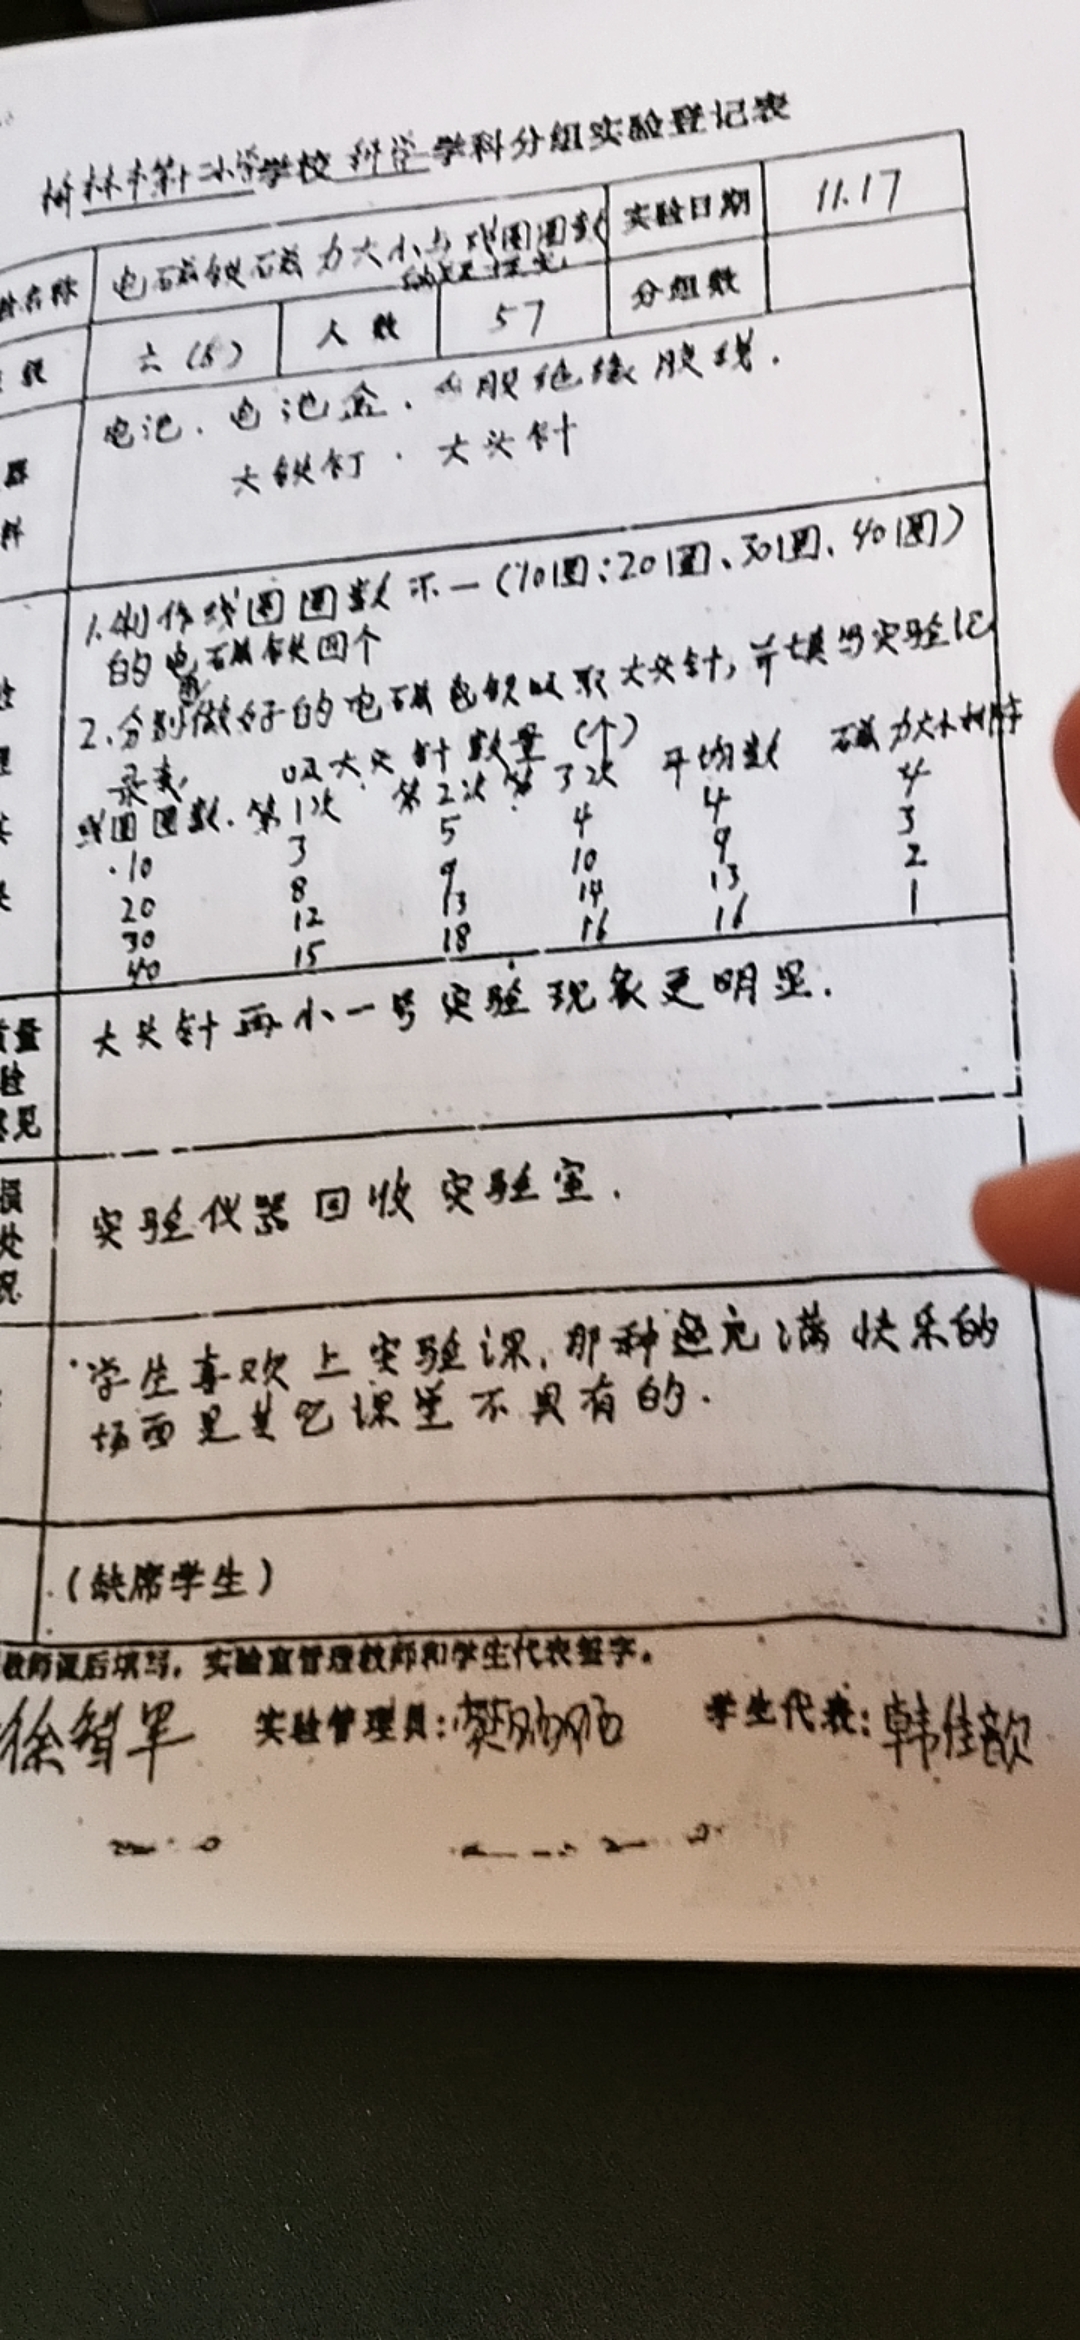 林市第十二小学学校 科学 学科分组实验登记表
名称 电磁铁磁力大小与线圈圈数 实验日期 11.17
六（5） 人数 57 分组数
电池、电池盒、股绝缘胶线.
大铁钉、大头针
1.制作线圈圈数不一（10圈:20圈、30圈、40圈）
的电磁铁四个
2.分别做好的电磁铁吸取大头针，并填写实验记
录表 吸大头针数量（个） 平均数 磁力大小排序
线圈圈数. 第1次 第2次 第3次
10 3 5 4 4 4
20 8 9 10 9 3
30 12 13 14 13 2
40 15 18 16 16 1
量
验 大头针再小一号实验现象更明显.
见
损
处 实验仪器回收实验室.
况
学生喜欢上实验课,那种充满快乐的
场面是其它课堂不具有的.
（缺席学生）
教师课后填写，实验室管理教师和学生代表签字。
徐智军 实验管理员: 学生代表:韩佳歆